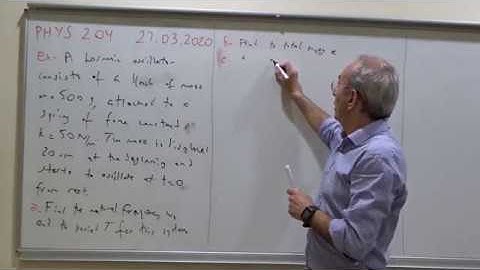 PHYS 204 27.03.2020
Ex:- A harmonic oscillator
consists of a block of mass
m=500 g, attached to a
spring of force constant
k=50 N/m. The mass is displaced
20 cm at the beginning and
starts to oscillate at t=0
from rest.
a. Find the natural frequency ω₀
and the period T for this system
b- Find the total energy
c.